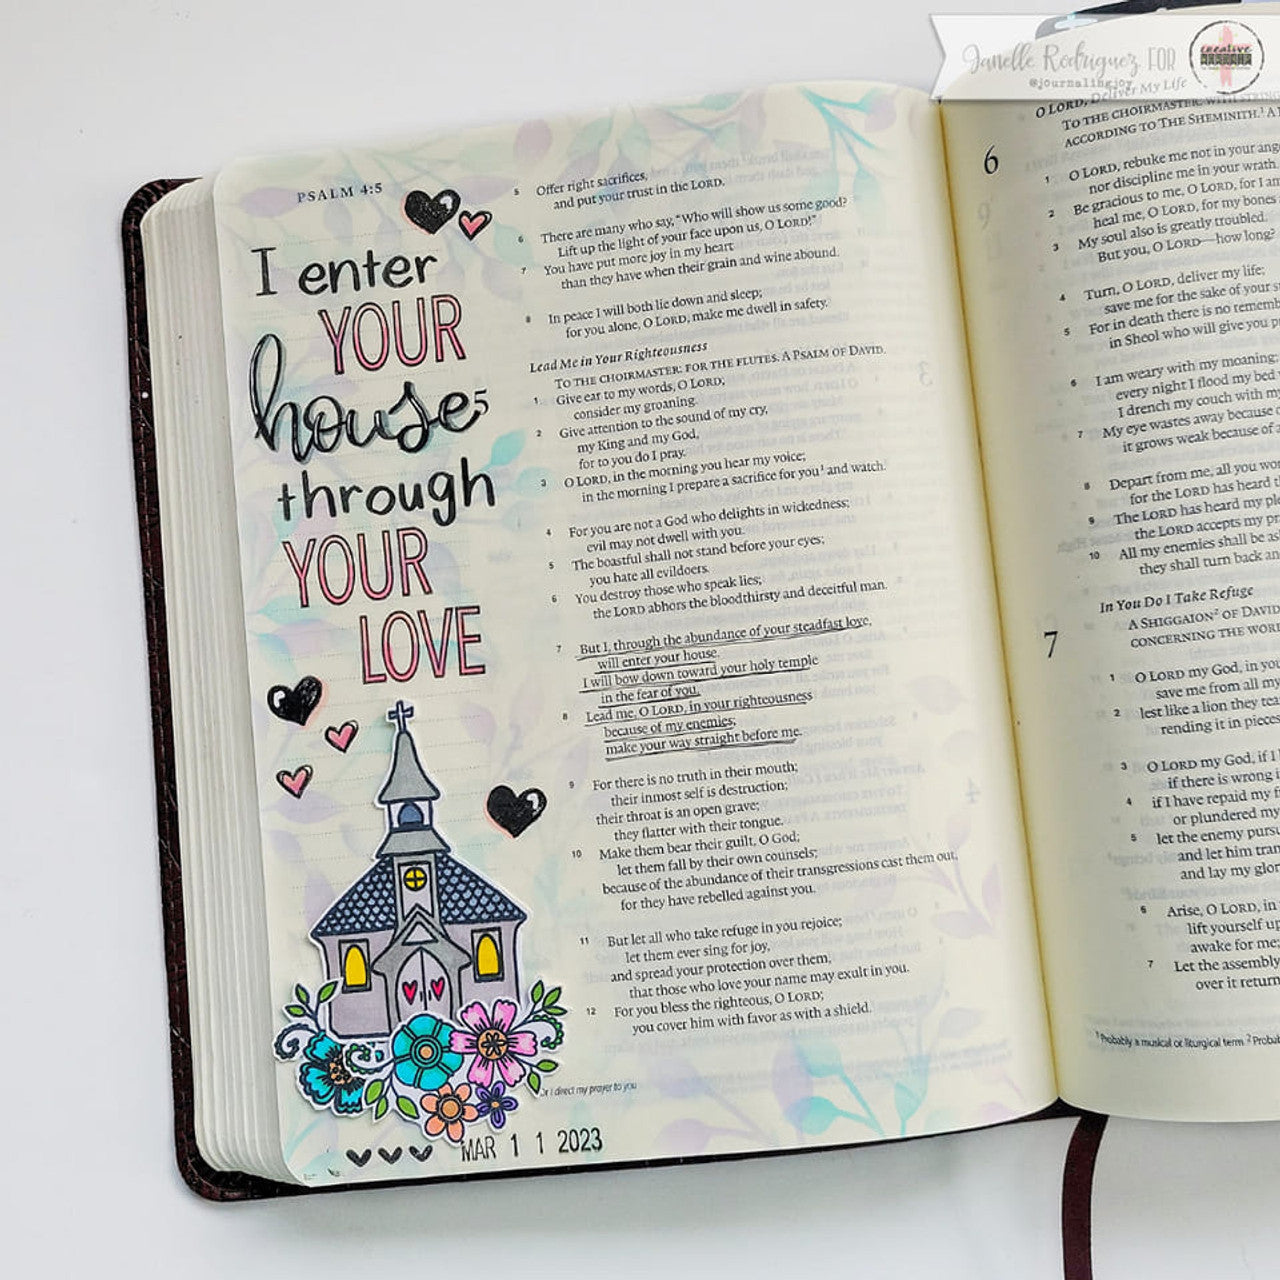 Janelle Rodriguez FOR
@journalingjoy
creative
PSALM 4:5
I enter
YOUR
house
5
through
YOUR
LOVE
MAR 1 1 2023
5 Offer right sacrifices,
and put your trust in the LORD.
6 There are many who say, “Who will show us some good?
Lift up the light of your face upon us, O LORD!”
7 You have put more joy in my heart
than they have when their grain and wine abound.
8 In peace I will both lie down and sleep;
for you alone, O LORD, make me dwell in safety.
Lead Me in Your Righteousness
TO THE CHOIRMASTER: FOR THE FLUTES. A PSALM OF DAVID.
1 Give ear to my words, O LORD;
consider my groaning.
2 Give attention to the sound of my cry,
my King and my God,
for to you do I pray.
3 O LORD, in the morning you hear my voice;
in the morning I prepare a sacrifice for you¹ and watch.
4 For you are not a God who delights in wickedness;
evil may not dwell with you.
5 The boastful shall not stand before your eyes;
you hate all evildoers.
6 You destroy those who speak lies;
the LORD abhors the bloodthirsty and deceitful man.
7 But I, through the abundance of your steadfast love,
will enter your house.
I will bow down toward your holy temple
in the fear of you.
8 Lead me, O LORD, in your righteousness
because of my enemies;
make your way straight before me.
9 For there is no truth in their mouth;
their inmost self is destruction;
their throat is an open grave;
they flatter with their tongue.
10 Make them bear their guilt, O God;
let them fall by their own counsels;
because of the abundance of their transgressions cast them out,
for they have rebelled against you.
11 But let all who take refuge in you rejoice;
let them ever sing for joy,
and spread your protection over them,
that those who love your name may exult in you.
12 For you bless the righteous, O LORD;
you cover him with favor as with a shield.
Or I direct my prayer to you
O LORD, Deliver My Life
TO THE CHOIRMASTER: WITH STRING
ACCORDING TO THE SHEMINITH.¹ A
6
1 O LORD, rebuke me not in your ang
nor discipline me in your wrath
2 Be gracious to me, O LORD, for I am
heal me, O LORD, for my bones
3 My soul also is greatly troubled.
But you, O LORD—how long?
4 Turn, O LORD, deliver my life;
save me for the sake of your s
5 For in death there is no rememb
in Sheol who will give you p
6 I am weary with my moaning;
every night I flood my bed
I drench my couch with m
7 My eye wastes away because
it grows weak because of a
8 Depart from me, all you wor
for the LORD has heard t
9 The LORD has heard my ple
the LORD accepts my pr
10 All my enemies shall be as
they shall turn back an
In You Do I Take Refuge
A SHIGGAION² OF DAVID
CONCERNING THE WOR
7
1 O LORD my God, in you
save me from all my
2 lest like a lion they tea
rending it in pieces
3 O LORD my God, if I
if there is wrong i
4 if I have repaid my f
or plundered my
5 let the enemy pursu
and let him tran
and lay my glor
6 Arise, O LORD, in
lift yourself up
awake for me;
7 Let the assembly
over it return
¹ Probably a musical or liturgical term ² Probab